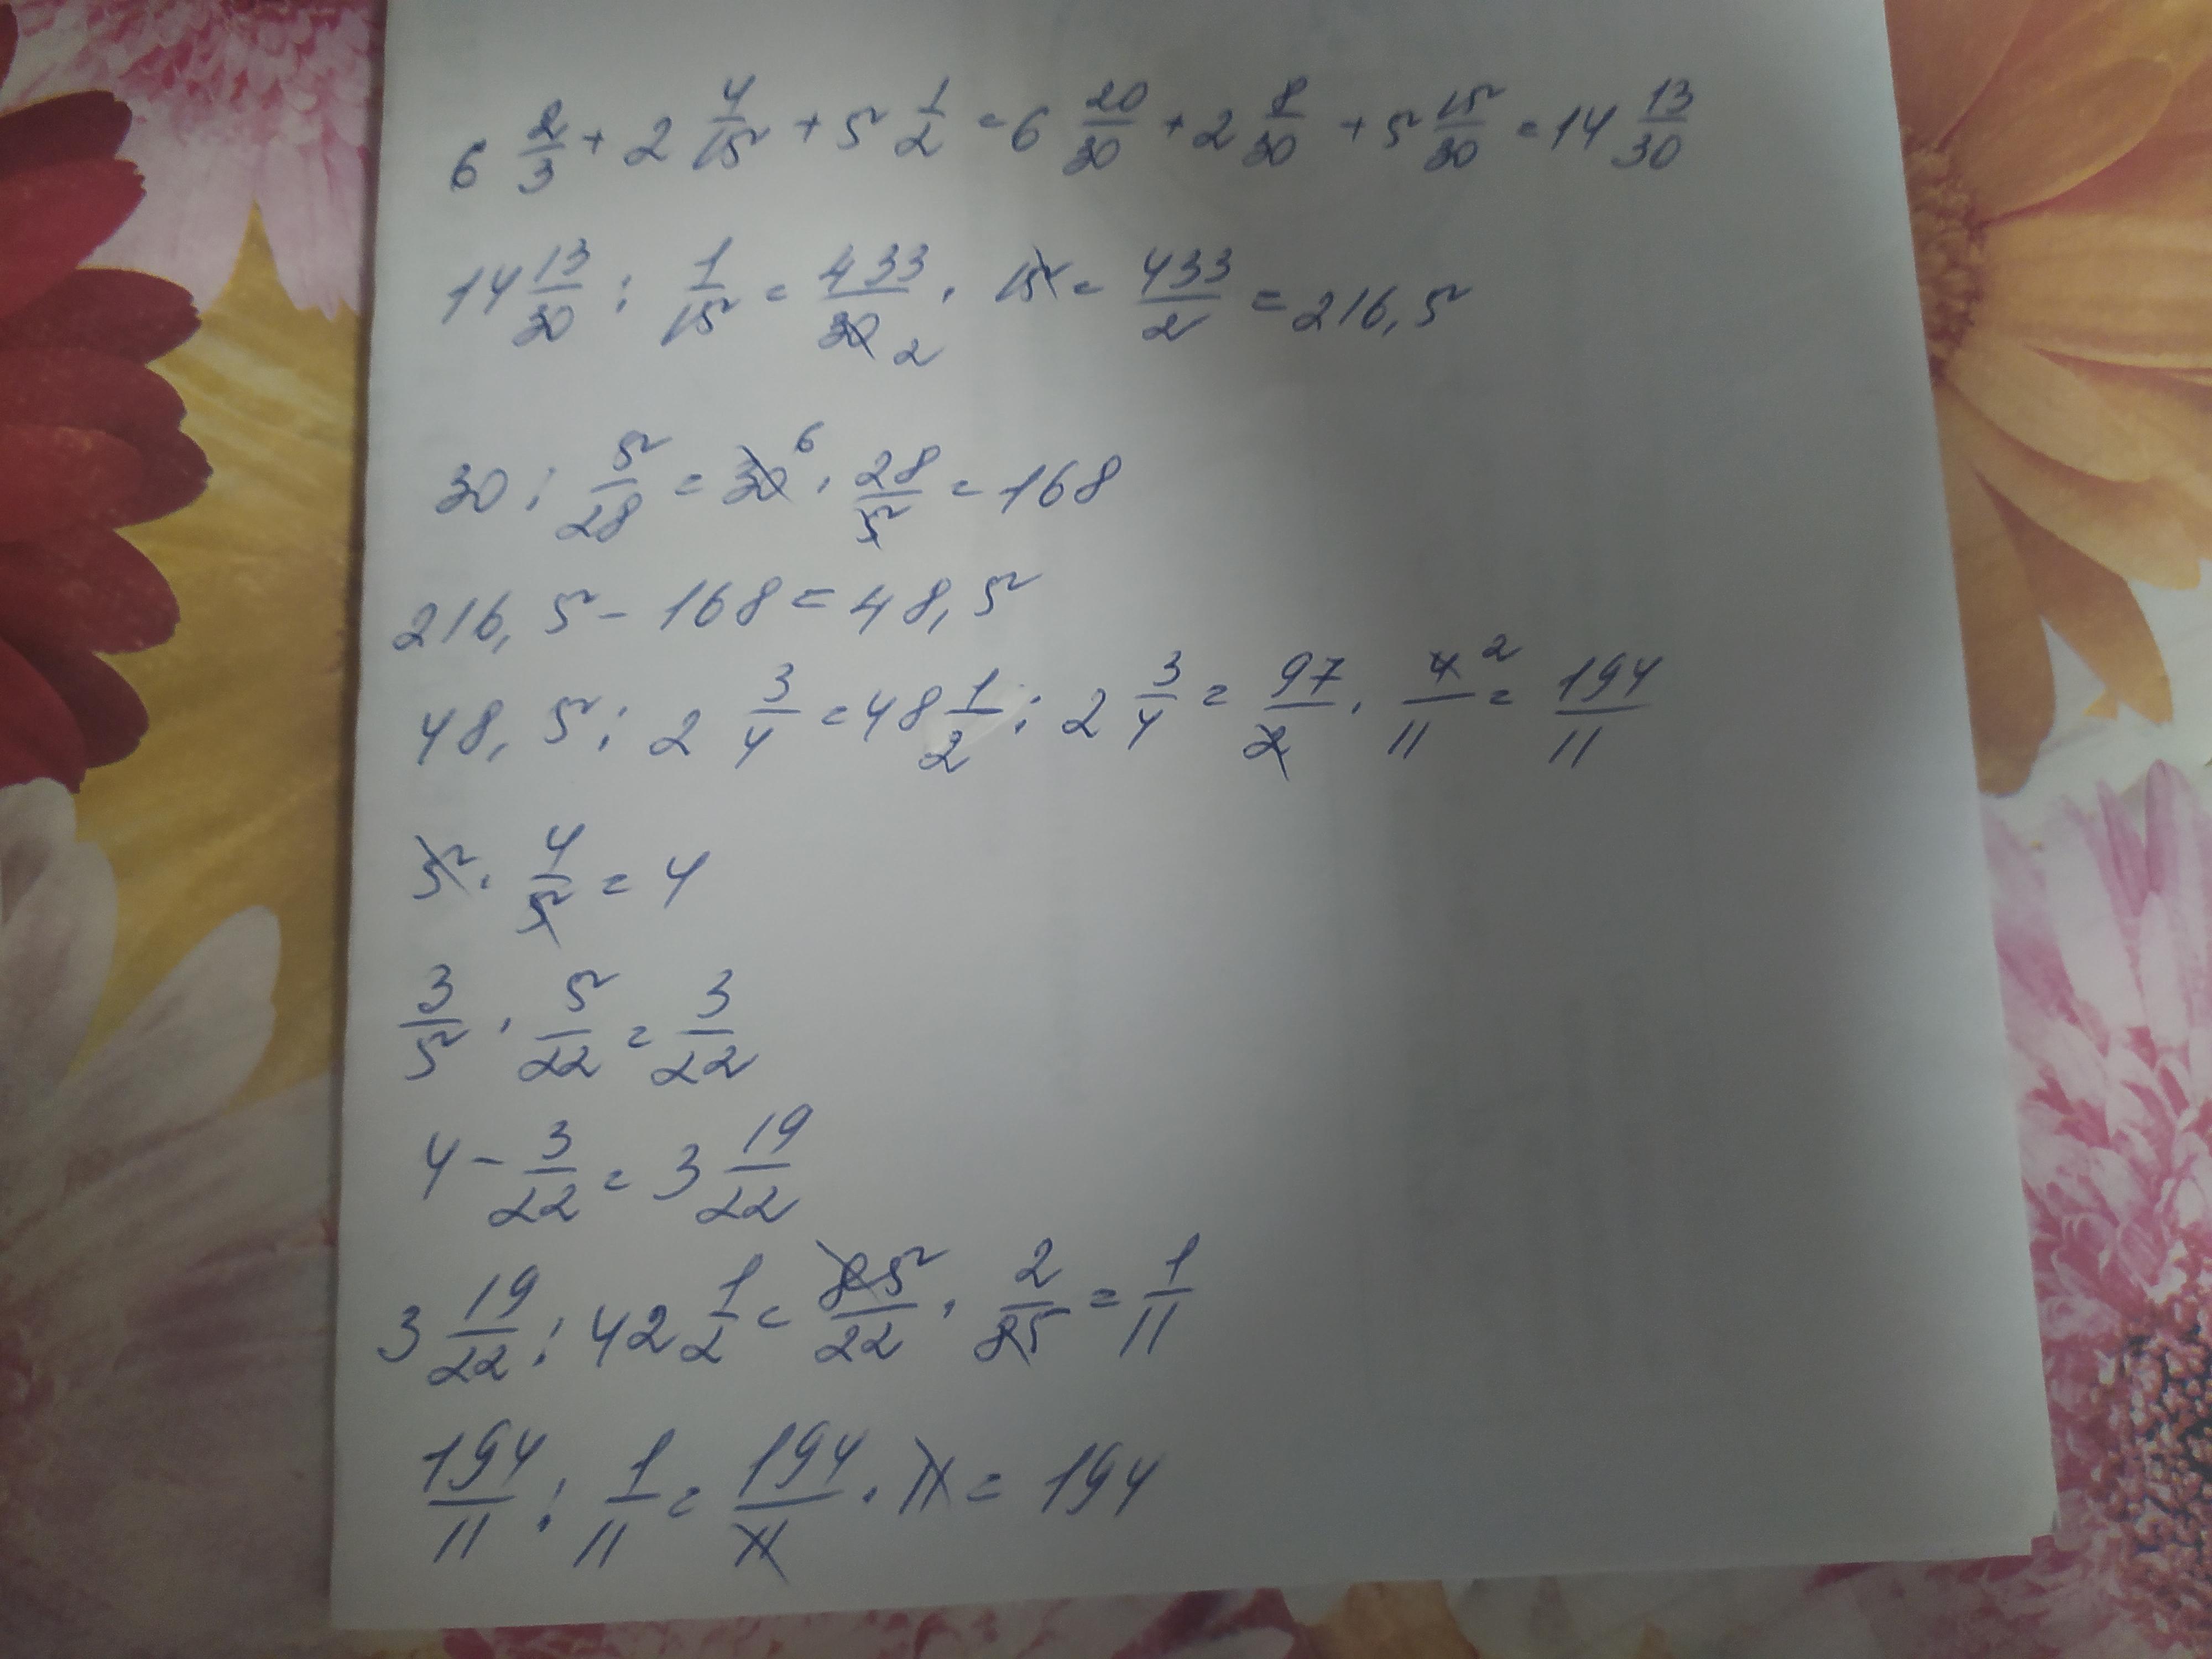 6 2/3 + 2 4/15 + 5 1/2 = 6 20/30 + 2 8/30 + 5 15/30 = 14 13/30
14 13/30 : 1/15 = 433/30 2 · 15 = 433/2 = 216,5
30 : 5/28 = 30 6 · 28/5 = 168
216,5 - 168 = 48,5
48,5 : 2 3/4 = 48 1/2 : 2 3/4 = 97/2 · 4 2/11 = 194/11
5 · 4/5 = 4
3/5 · 5/22 = 3/22
4 - 3/22 = 3 19/22
3 19/22 : 42 1/2 = 85/22 · 2/85 = 1/11
194/11 : 1/11 = 194/11 · 11 = 194